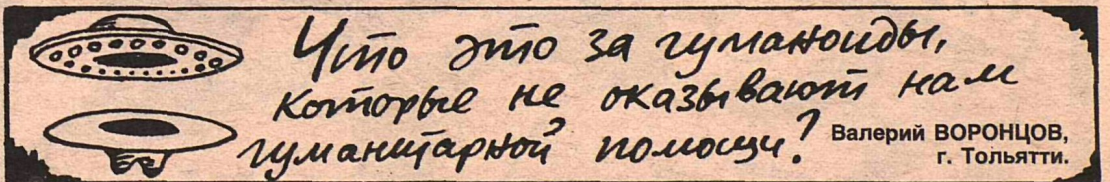 Что это за гуманоиды,
которые не оказывают нам
гуманитарной помощи?
Валерий ВОРОНЦОВ,
г. Тольятти.